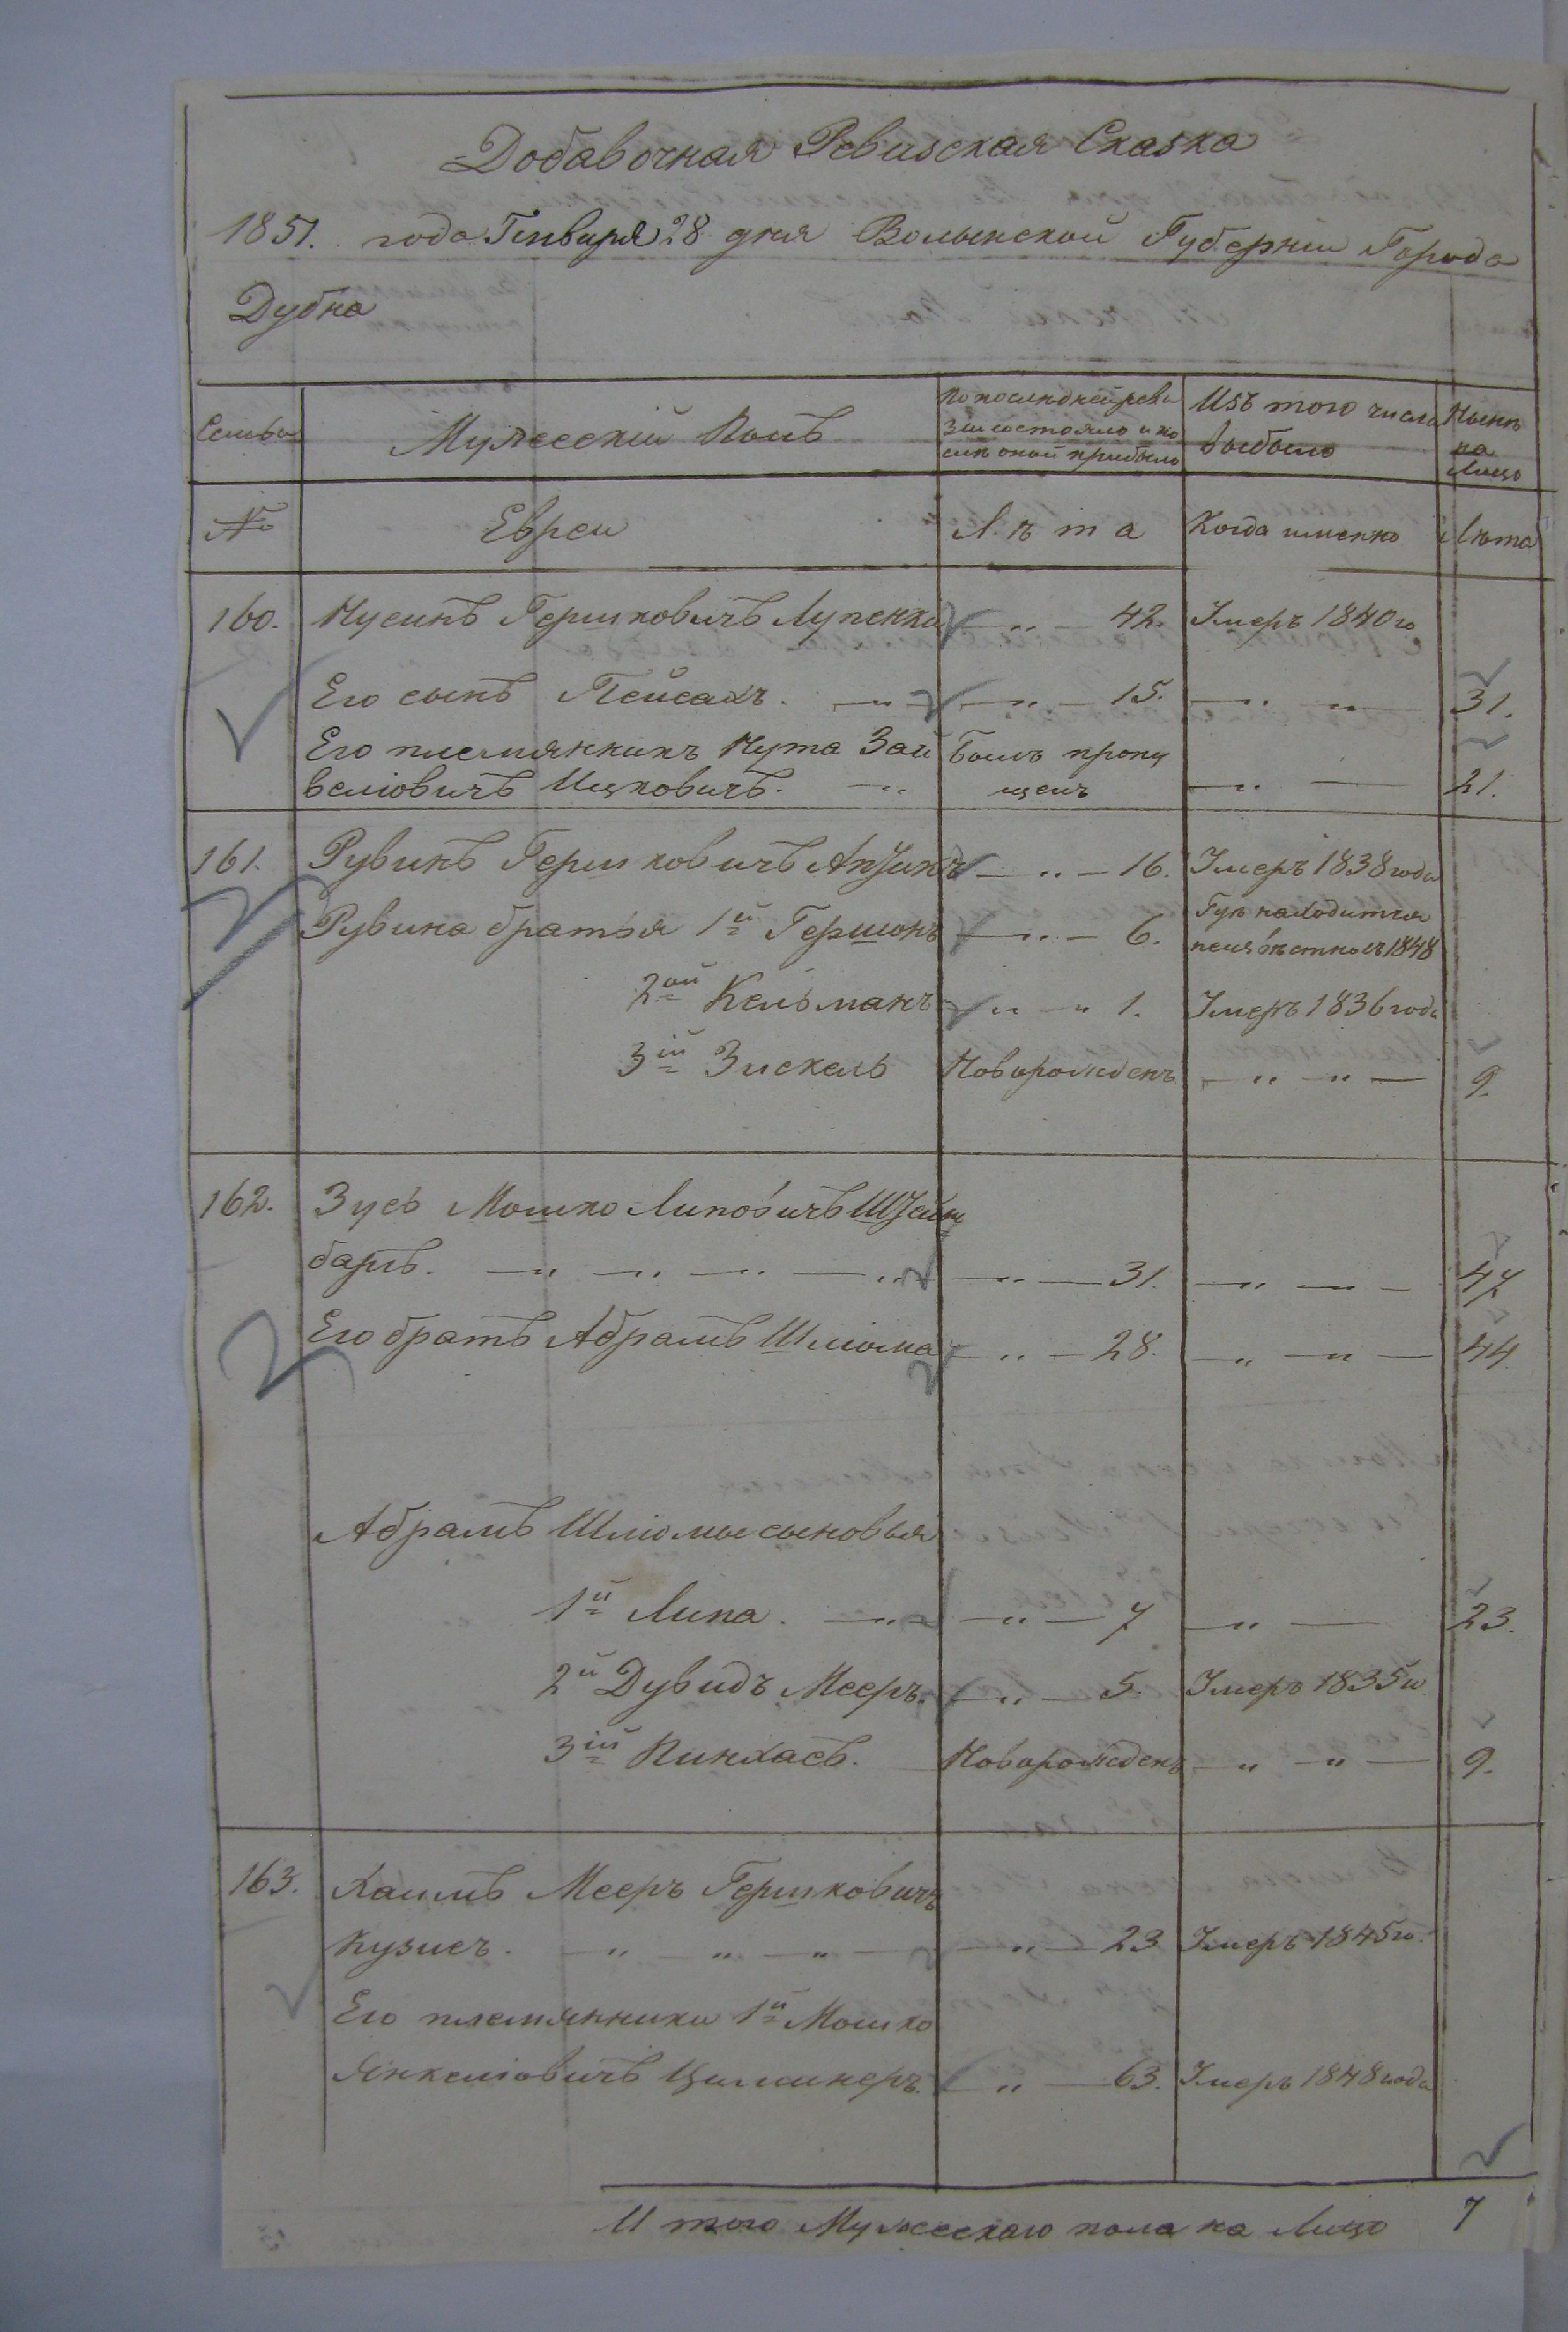 Добавочная Ревизская Сказка
1851. года Генваря 28 дня Волынской Губернии Города
Дубна
Семьи
Мужеский Полъ
По последней реви
зіи состояло и по
слѣ оной прибыло
Изъ того числа
выбыло
Нынѣ
на
Лицо
№
Евреи
Лѣта
Когда именно
Лѣта
160. Нусинъ Гершковичъ Лупенко — „ — 42. Умеръ 1840 го
Его сынъ Пейсахъ. — „ — „ — 15. — „ — „ 31.
Его племянникъ Нута Зай Былъ пропу
веліовичъ Ицковичъ. — „ щенъ — „ — 21.
161. Рувинъ Гершковичъ — „ — 16. Умеръ 1838 года
Рувина братья 1й Гершонъ — „ — 6. Гдѣ находится
неизвѣстно съ 1848
2ой Кельманъ „ — „ 1. Умеръ 1836 года
3ій Зискель Новорожденъ — „ — „ — 9.
162. Зусь Мошко Липовичъ
баръ. — „ — „ — „ — „ — „ — 31. — „ — „ — 47
Его братъ Абрамъ Шлiома — „ — 28. — „ — „ — 44
Абрамъ Шліомы сыновья
1й Липа. — „ — „ — 7 — „ — 23.
2й Дувидъ Мееръ. — „ — 5. Умеръ 1835 го
3ій Пинхасъ. Новорожденъ — „ — „ — 9.
163. Хаимъ Мееръ Гершковичъ
Кузнеръ. — „ — „ — „ — „ — 23 Умеръ 1845 го.
Его племянники 1й Мошко
Янкеліовичъ — „ — 63. Умеръ 1848 года
Итого Мужескаго пола на Лицо 7